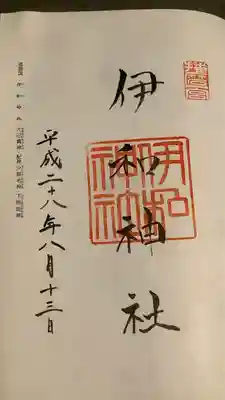 伊和神社
伊和
神社
平成二十八年八月十三日